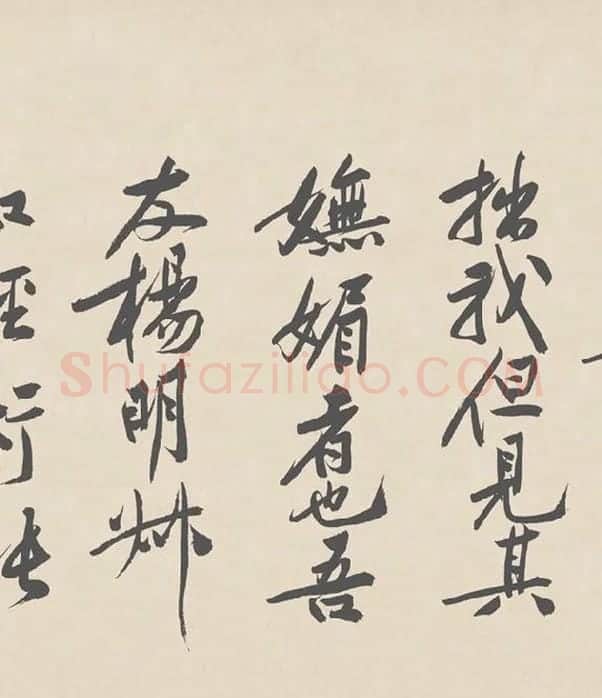 拙我但見其
嫵媚者也吾
友楊明叔